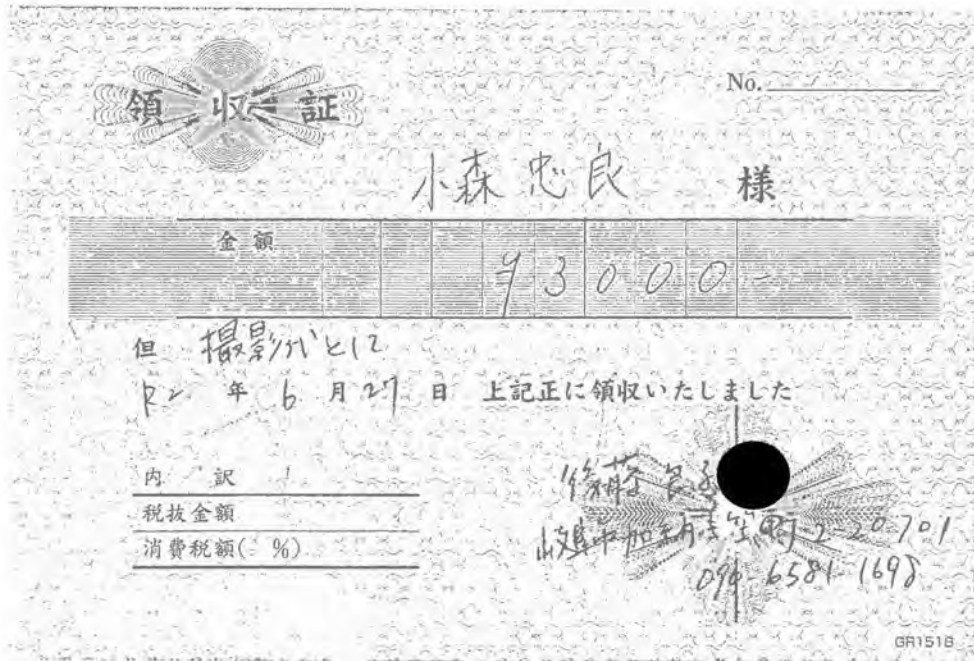 領収証
No.
小森忠良 様
金額
¥3000-
但 撮影代として
R2年6月27日 上記正に領収いたしました
内訳
税抜金額
消費税額( %)
後藤良子
岐阜市加納 町2-20 701
090-6581-1698
GR1518